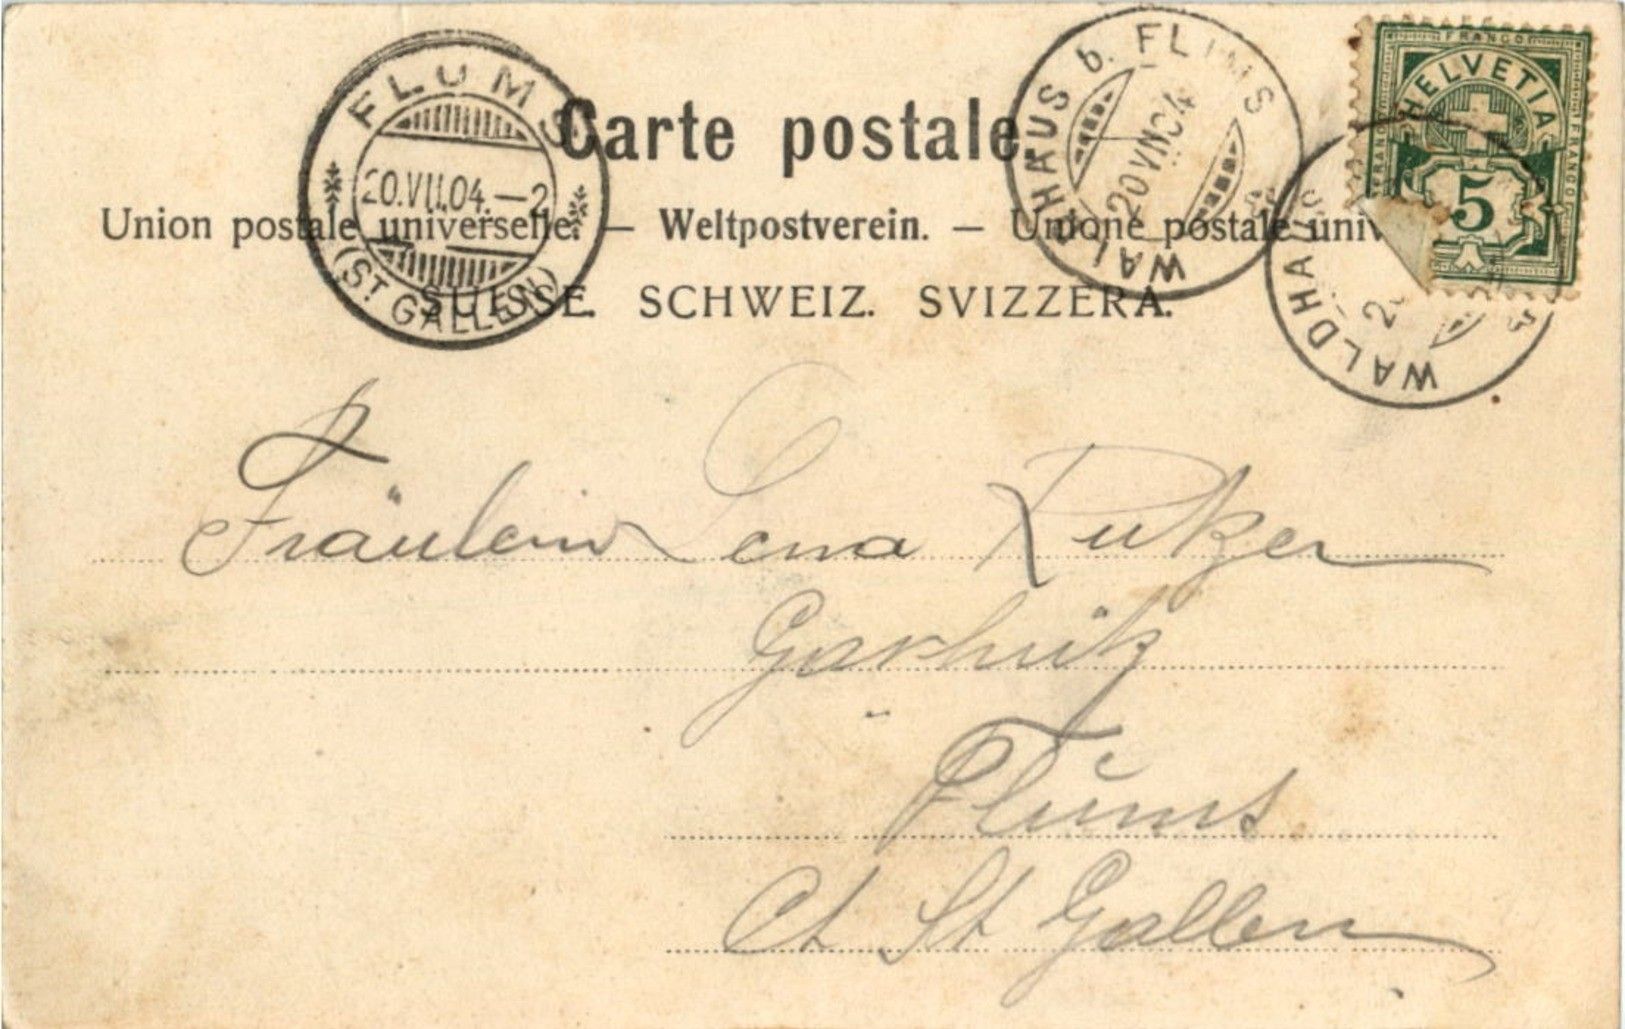 FLUMS
20.VII.04.–2
(ST GALLEN)
Carte postale.
WALDHAUS b. FLIMS
20 VII 04
FRANCO
HELVETIA
FRANCO
FRANCO
5
WALDHAUS
Union postale universelle. — Weltpostverein. — Unione postale
SUISSE. SCHWEIZ. SVIZZERA.
Fräulein Lena
Flums
Ct St Gallen